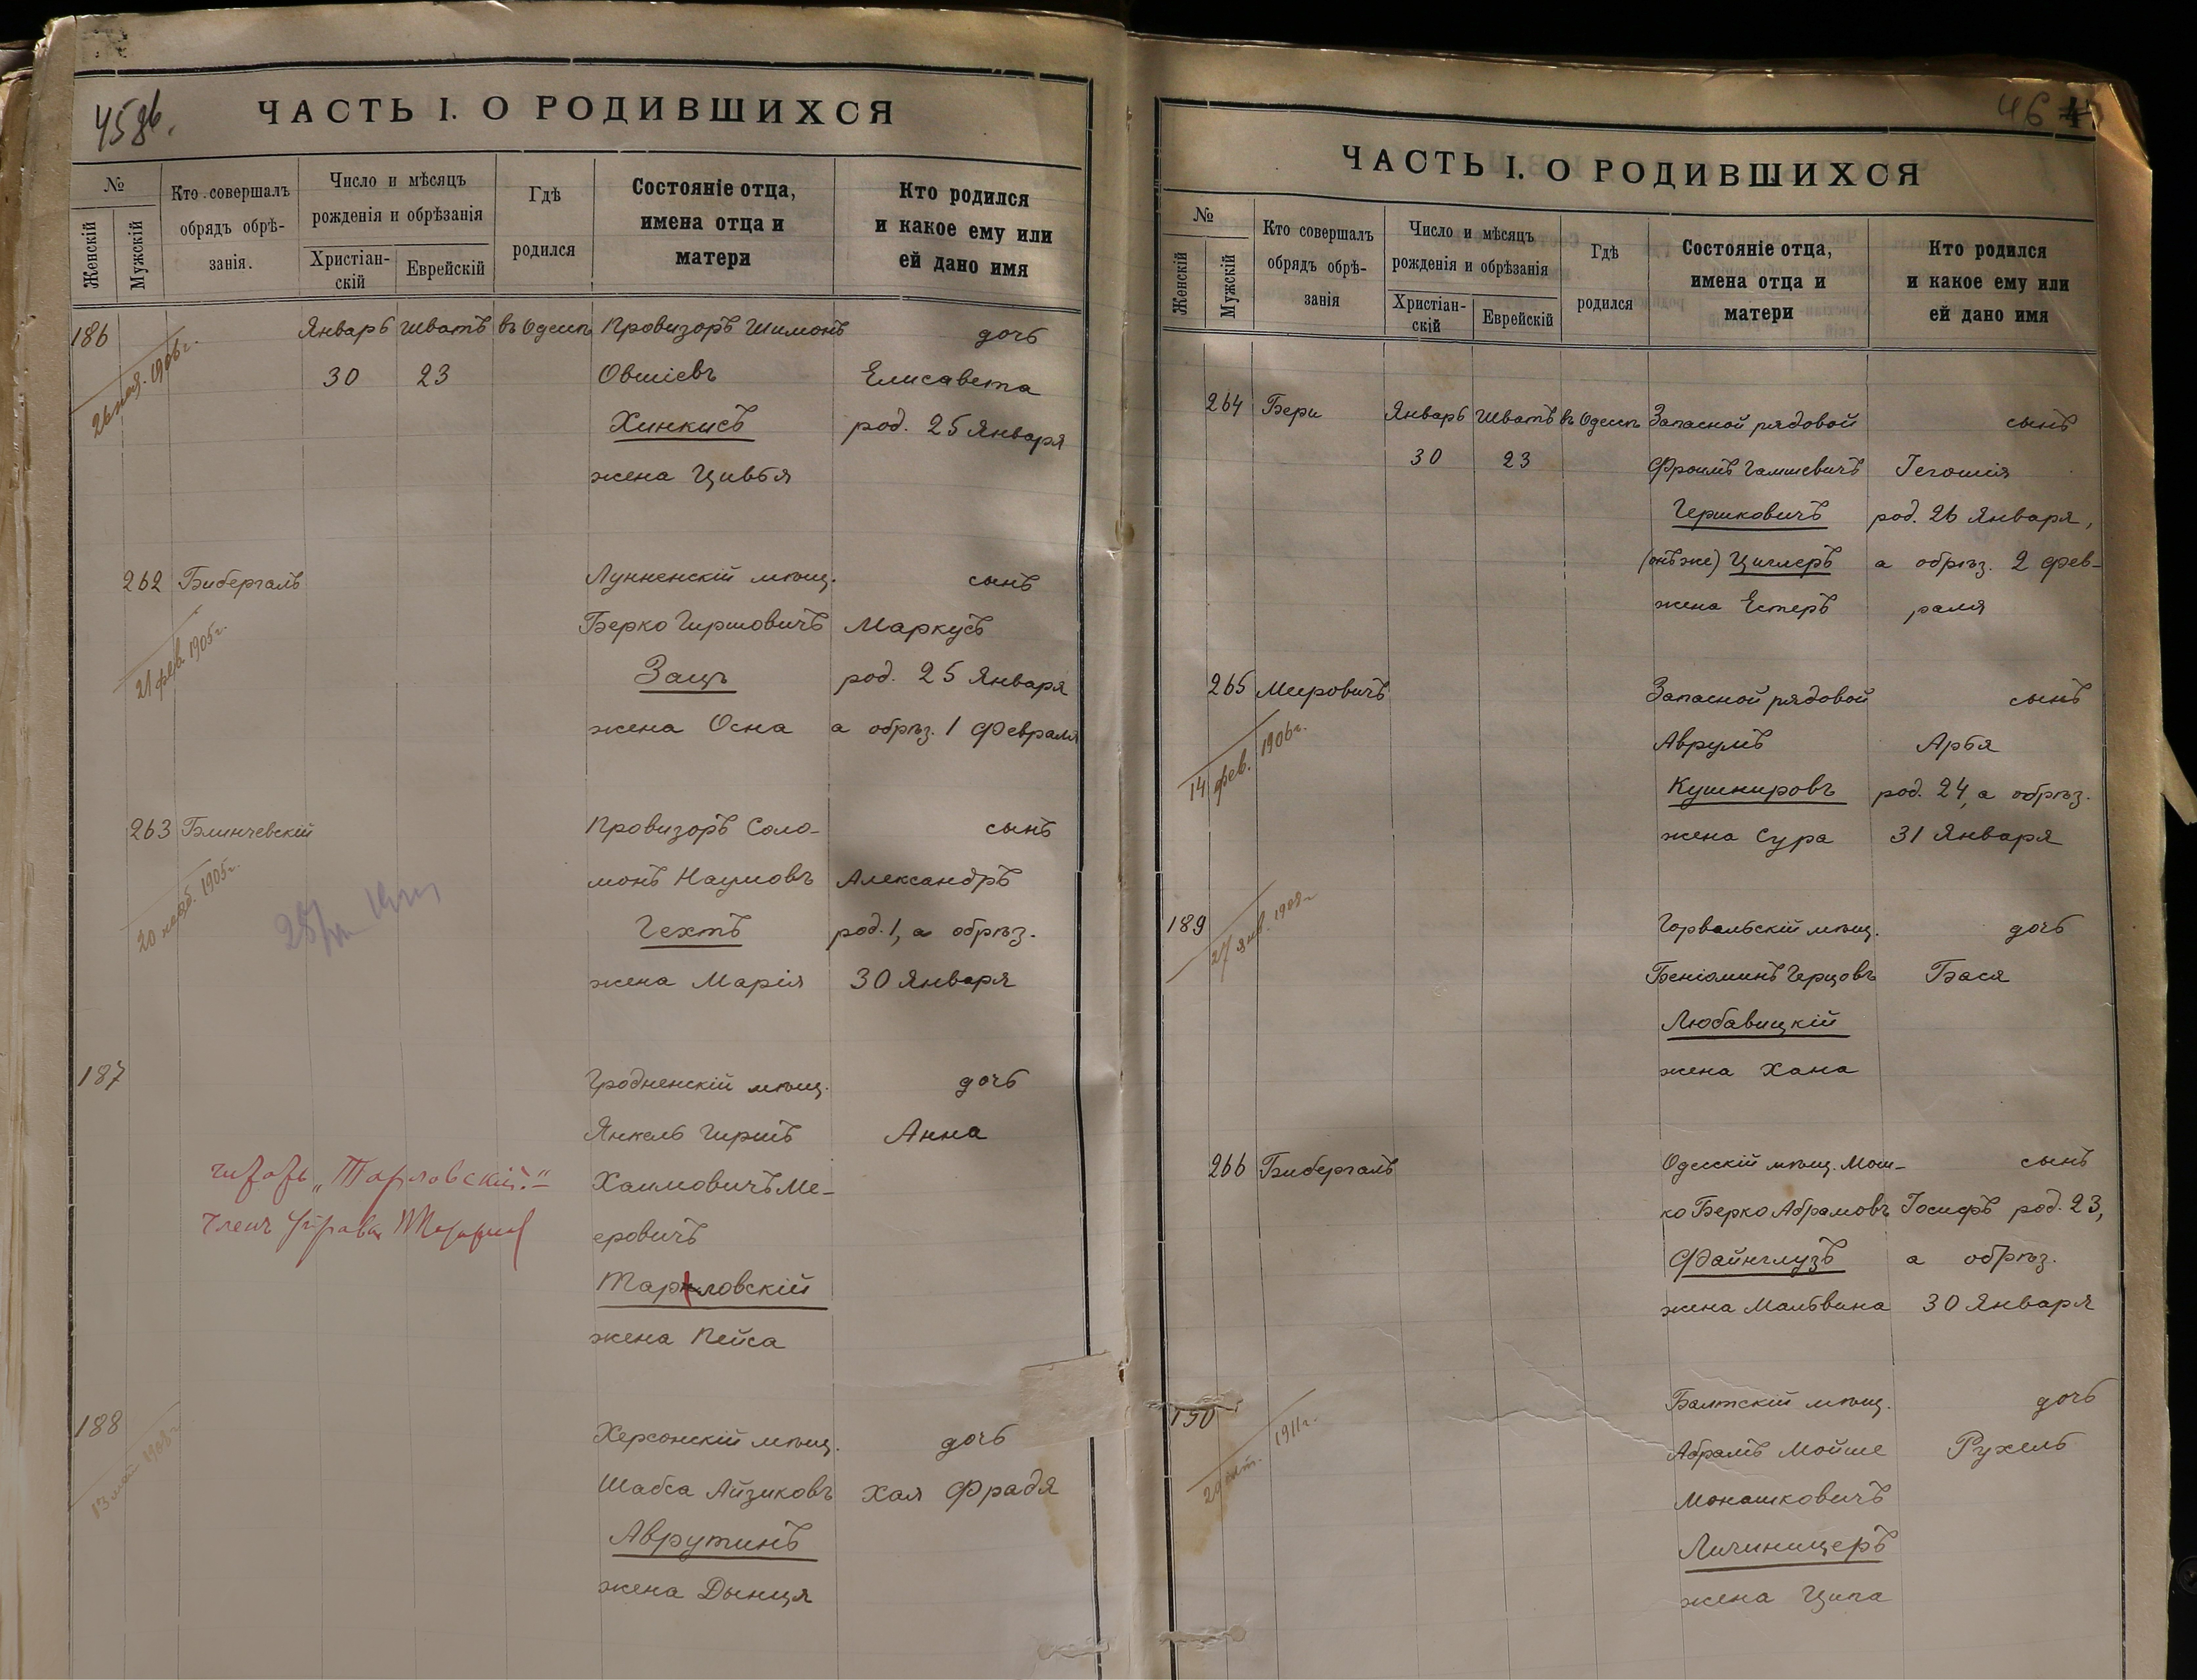 45об.
ЧАСТЬ I. О РОДИВШИХСЯ
№
Женскій
Мужскій
Кто совершалъ
обрядъ обрѣ-
занія.
Число и мѣсяцъ
рожденія и обрѣзанія
Христіан-
скій
Еврейскій
Гдѣ
родился
Состояніе отца,
имена отца и
матери
Кто родился
и какое ему или
ей дано имя
186 Январь Шватъ въ Одессѣ Провизоръ Шимонъ дочь
30 23 Овшіевъ Елисавета
Хинкисъ род. 25 Января
жена Цивья
262 Бибергалъ Лунненскій мѣщ. сынъ
Берко Гиршовичъ Маркусъ
21 фев. 1905г.
Защъ род. 25 Января
жена Осна а обрѣз. 1 Февраля
263 Блинчевскій Провизоръ Соло- сынъ
монъ Наумовъ Александръ
1905г.
Гехтъ род. 1, а обрѣз.
жена Марія 30 Января
187 Гродненскій мѣщ. дочь
Янкель Гиршъ Анна
читать „Тарловскій."
Хаимовичъ Ме-
Членъ Управы
еровичъ
Тарловскій
жена Пейса
188 Херсонскій мѣщ. дочь
13 мая 1908г.
Шабса Айзиковъ Хая Фрадя
Аврутинъ
жена Дынця
46
ЧАСТЬ I. О РОДИВШИХСЯ
№
Женскій
Мужскій
Кто совершалъ
обрядъ обрѣ-
занія
Число и мѣсяцъ
рожденія и обрѣзанія
Христіан-
скій
Еврейскій
Гдѣ
родился
Состояніе отца,
имена отца и
матери
Кто родился
и какое ему или
ей дано имя
264 Бери Январь Шватъ въ Одессѣ Запасной рядовой сынъ
30 23 Фроимъ Гамшевичъ Гегошія
Гершковичъ род. 26 Января,
(онъ же) Циглеръ а обрѣз. 2 Фев-
жена Естеръ раля
265 Мировичъ Запасной рядовой сынъ
14 фев. 1906г.
Аврумъ Арья
Кушнировъ род. 24, а обрѣз.
жена Сура 31 Января
189 Горвальскій мѣщ. дочь
27 янв. 1908г
Беніаминъ Герцовъ Бася
Любавицкій
жена Хана
266 Бибергалъ Одесскій мѣщ. Мош- сынъ
ко Берко Абрамовъ Іосифъ род. 23,
Файнглузъ а обрѣз.
жена Мальвина 30 Января
190 Балтскій мѣщ. дочь
1911г.
Абрамъ Мойше Рухель
Монашковичъ
Личиницеръ
жена Ципа